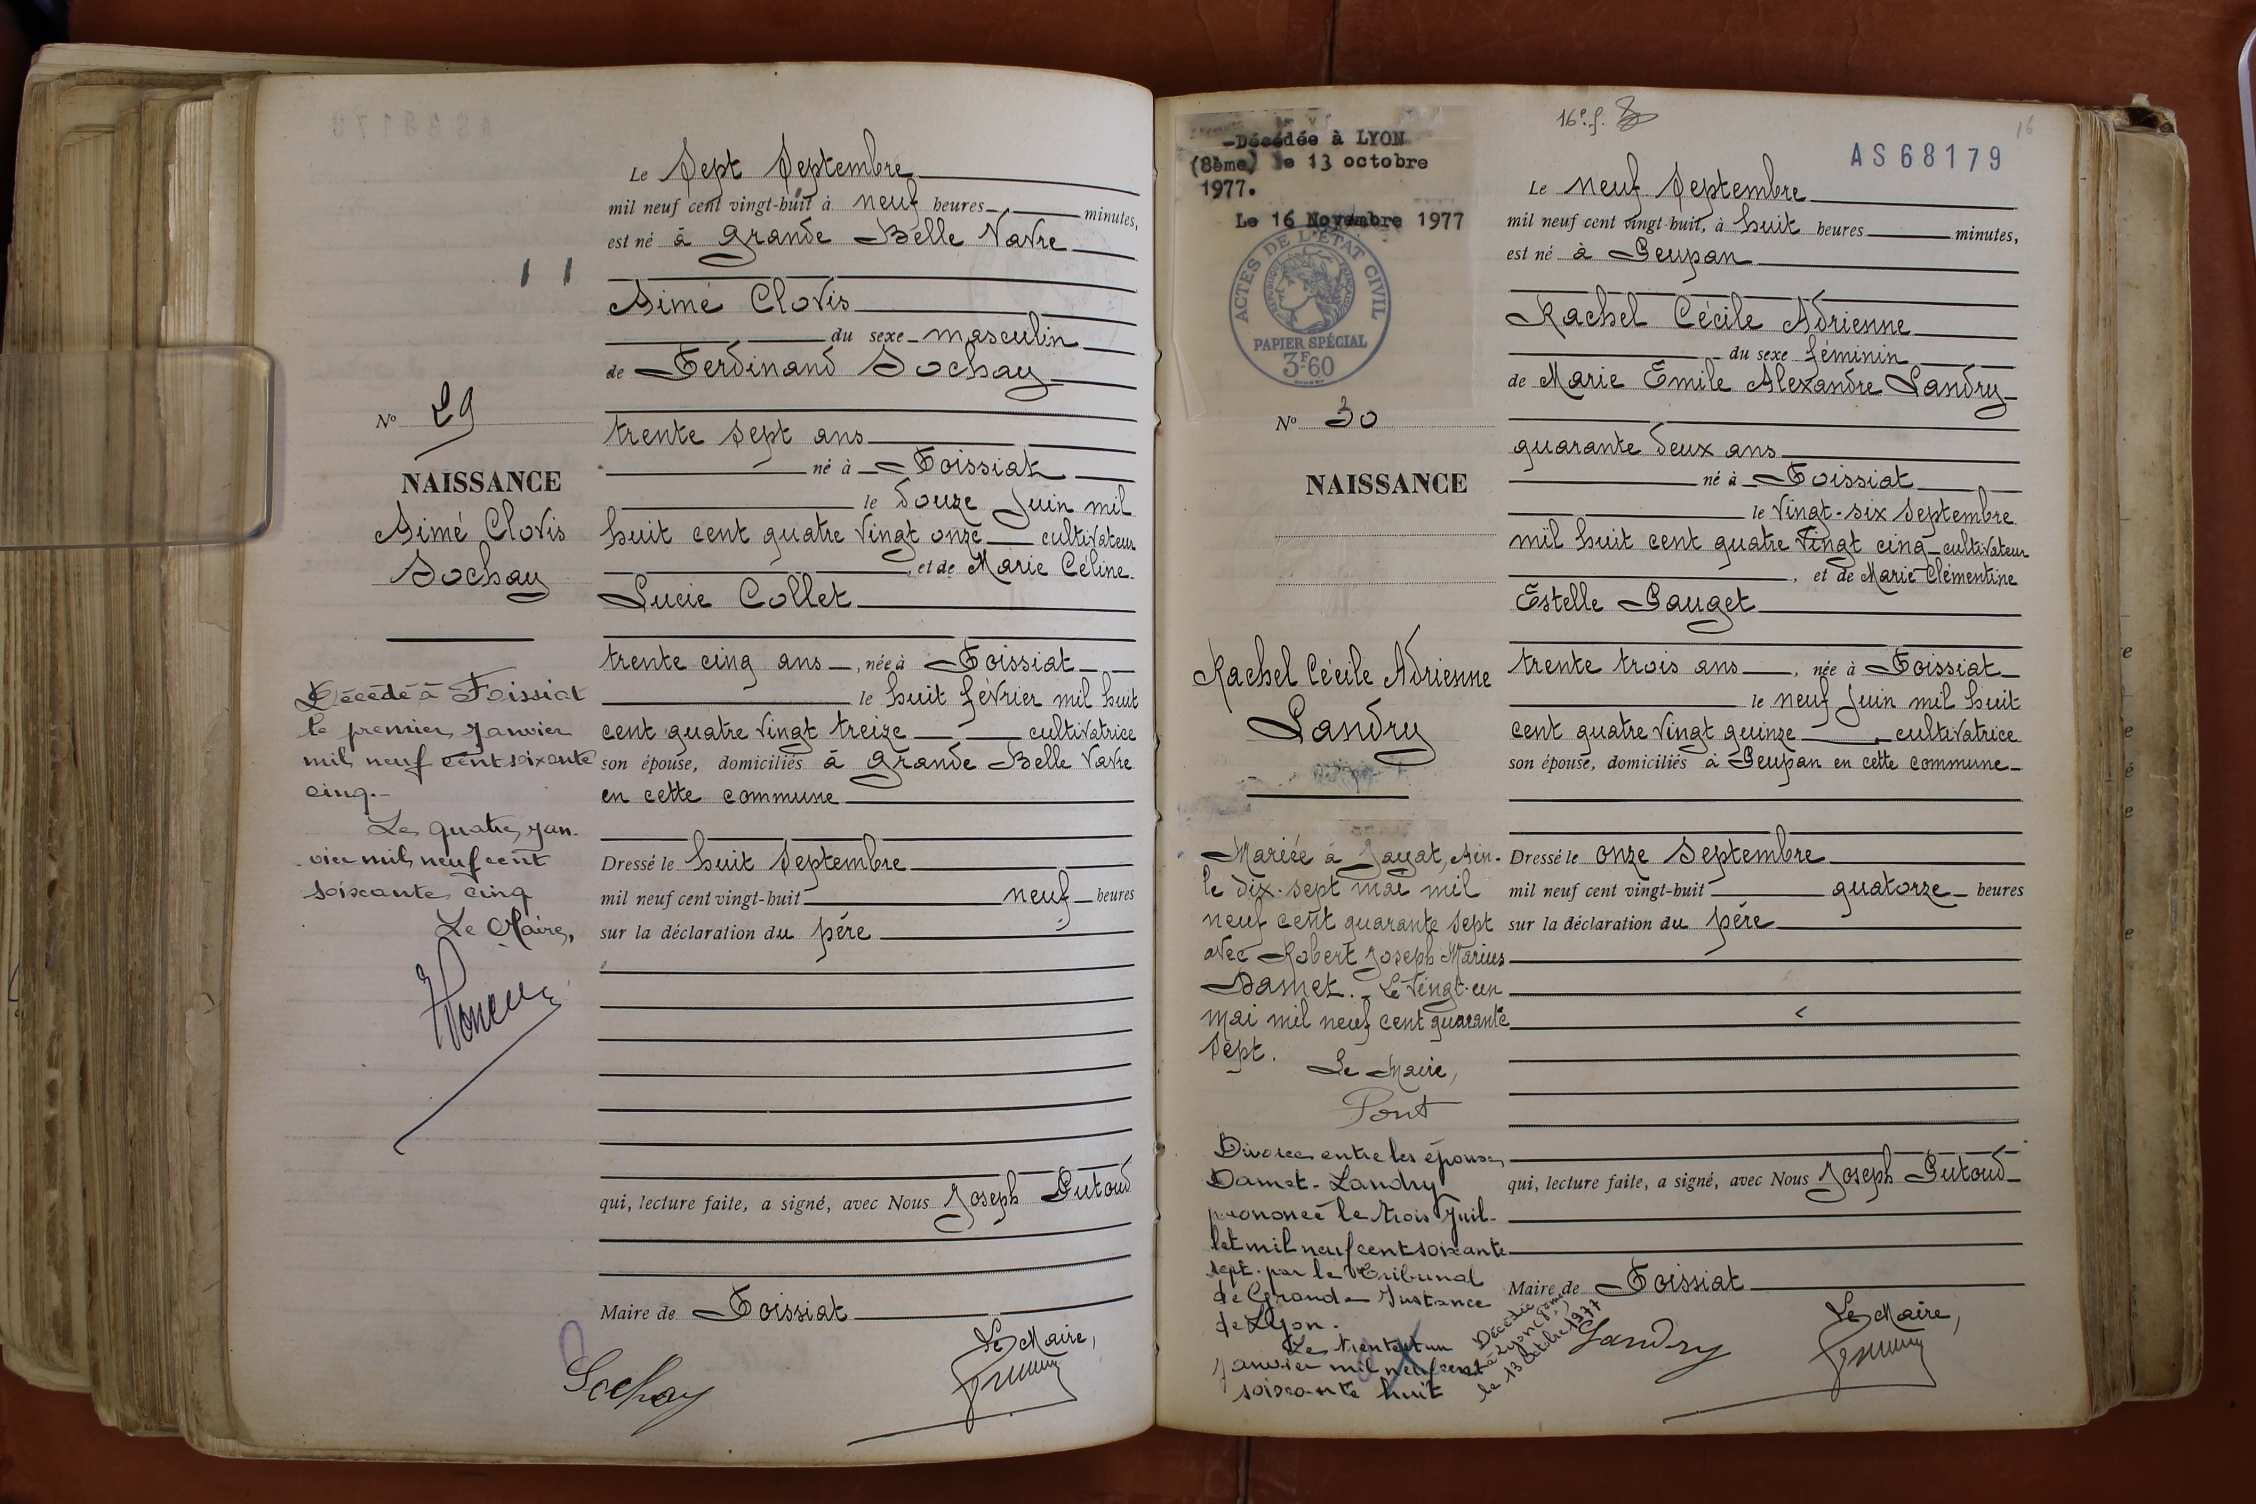 Le Sept Septembre
mil neuf cent vingt-huit à neuf heures minutes,
est né à Grande Belle Vavre
Aimé Clovis
du sexe masculin
de Ferdinand Sochay
trente sept ans
né à Foissiat
le douze Juin mil
huit cent quatre vingt onze cultivateur
, et de Marie Céline
Lucie Collet
trente cinq ans , née à Foissiat
le huit février mil huit
cent quatre vingt treize cultivatrice
son épouse, domiciliés à Grande Belle Vavre
en cette commune
Dressé le huit Septembre
mil neuf cent vingt-huit neuf heures
sur la déclaration du père
qui, lecture faite, a signé, avec Nous Joseph Putoud
Maire de Foissiat
Le Maire,
Sochay
No 29
NAISSANCE
Aimé Clovis
Sochay
Décédé à Foissiat
le premier Janvier
mil neuf cent soixante
cinq.-
Le quatre Jan-
vier mil neuf cent
soixante cinq
Le Maire,
16e. f.
16
AS68179
-Décédée à LYON
(8ème) le 13 octobre
1977.
Le 16 Novembre 1977
ACTES DE L'ÉTAT CIVIL
RÉPUBLIQUE FRANÇAISE
PAPIER SPÉCIAL
3F60
No 30
NAISSANCE
Rachel Cécile Adrienne
Landry
Mariée à Jayat, Ain.
le dix-sept mai mil
neuf cent quarante sept
avec Robert Joseph Marius
Damet. - Le vingt-un
mai mil neuf cent quarante
sept.
Le Maire,
Pont
Divorce entre les époux
Damet-Landry
prononcé le trois Juil-
let mil neuf cent soixante
sept par le Tribunal
de Grande Instance
de Lyon.
Le trente et un
Janvier mil neuf cent
soixante huit
Décédée
à Lyon (8ème)
le 13 Octobre 1977
Le neuf Septembre
mil neuf cent vingt-huit, à huit heures minutes,
est né à Peupan
Rachel Cécile Adrienne
du sexe féminin
de Marie Emile Alexandre Landry
quarante deux ans
né à Foissiat
le vingt-six Septembre
mil huit cent quatre vingt cinq cultivateur
, et de Marie Clémentine
Estelle Pauget
trente trois ans , née à Foissiat
le neuf Juin mil huit
cent quatre vingt quinze , cultivatrice
son épouse, domiciliés à Peupan en cette commune
Dressé le onze Septembre
mil neuf cent vingt-huit quatorze heures
sur la déclaration du père
qui, lecture faite, a signé, avec Nous Joseph Putoud
Maire de Foissiat
Le Maire,
Landry